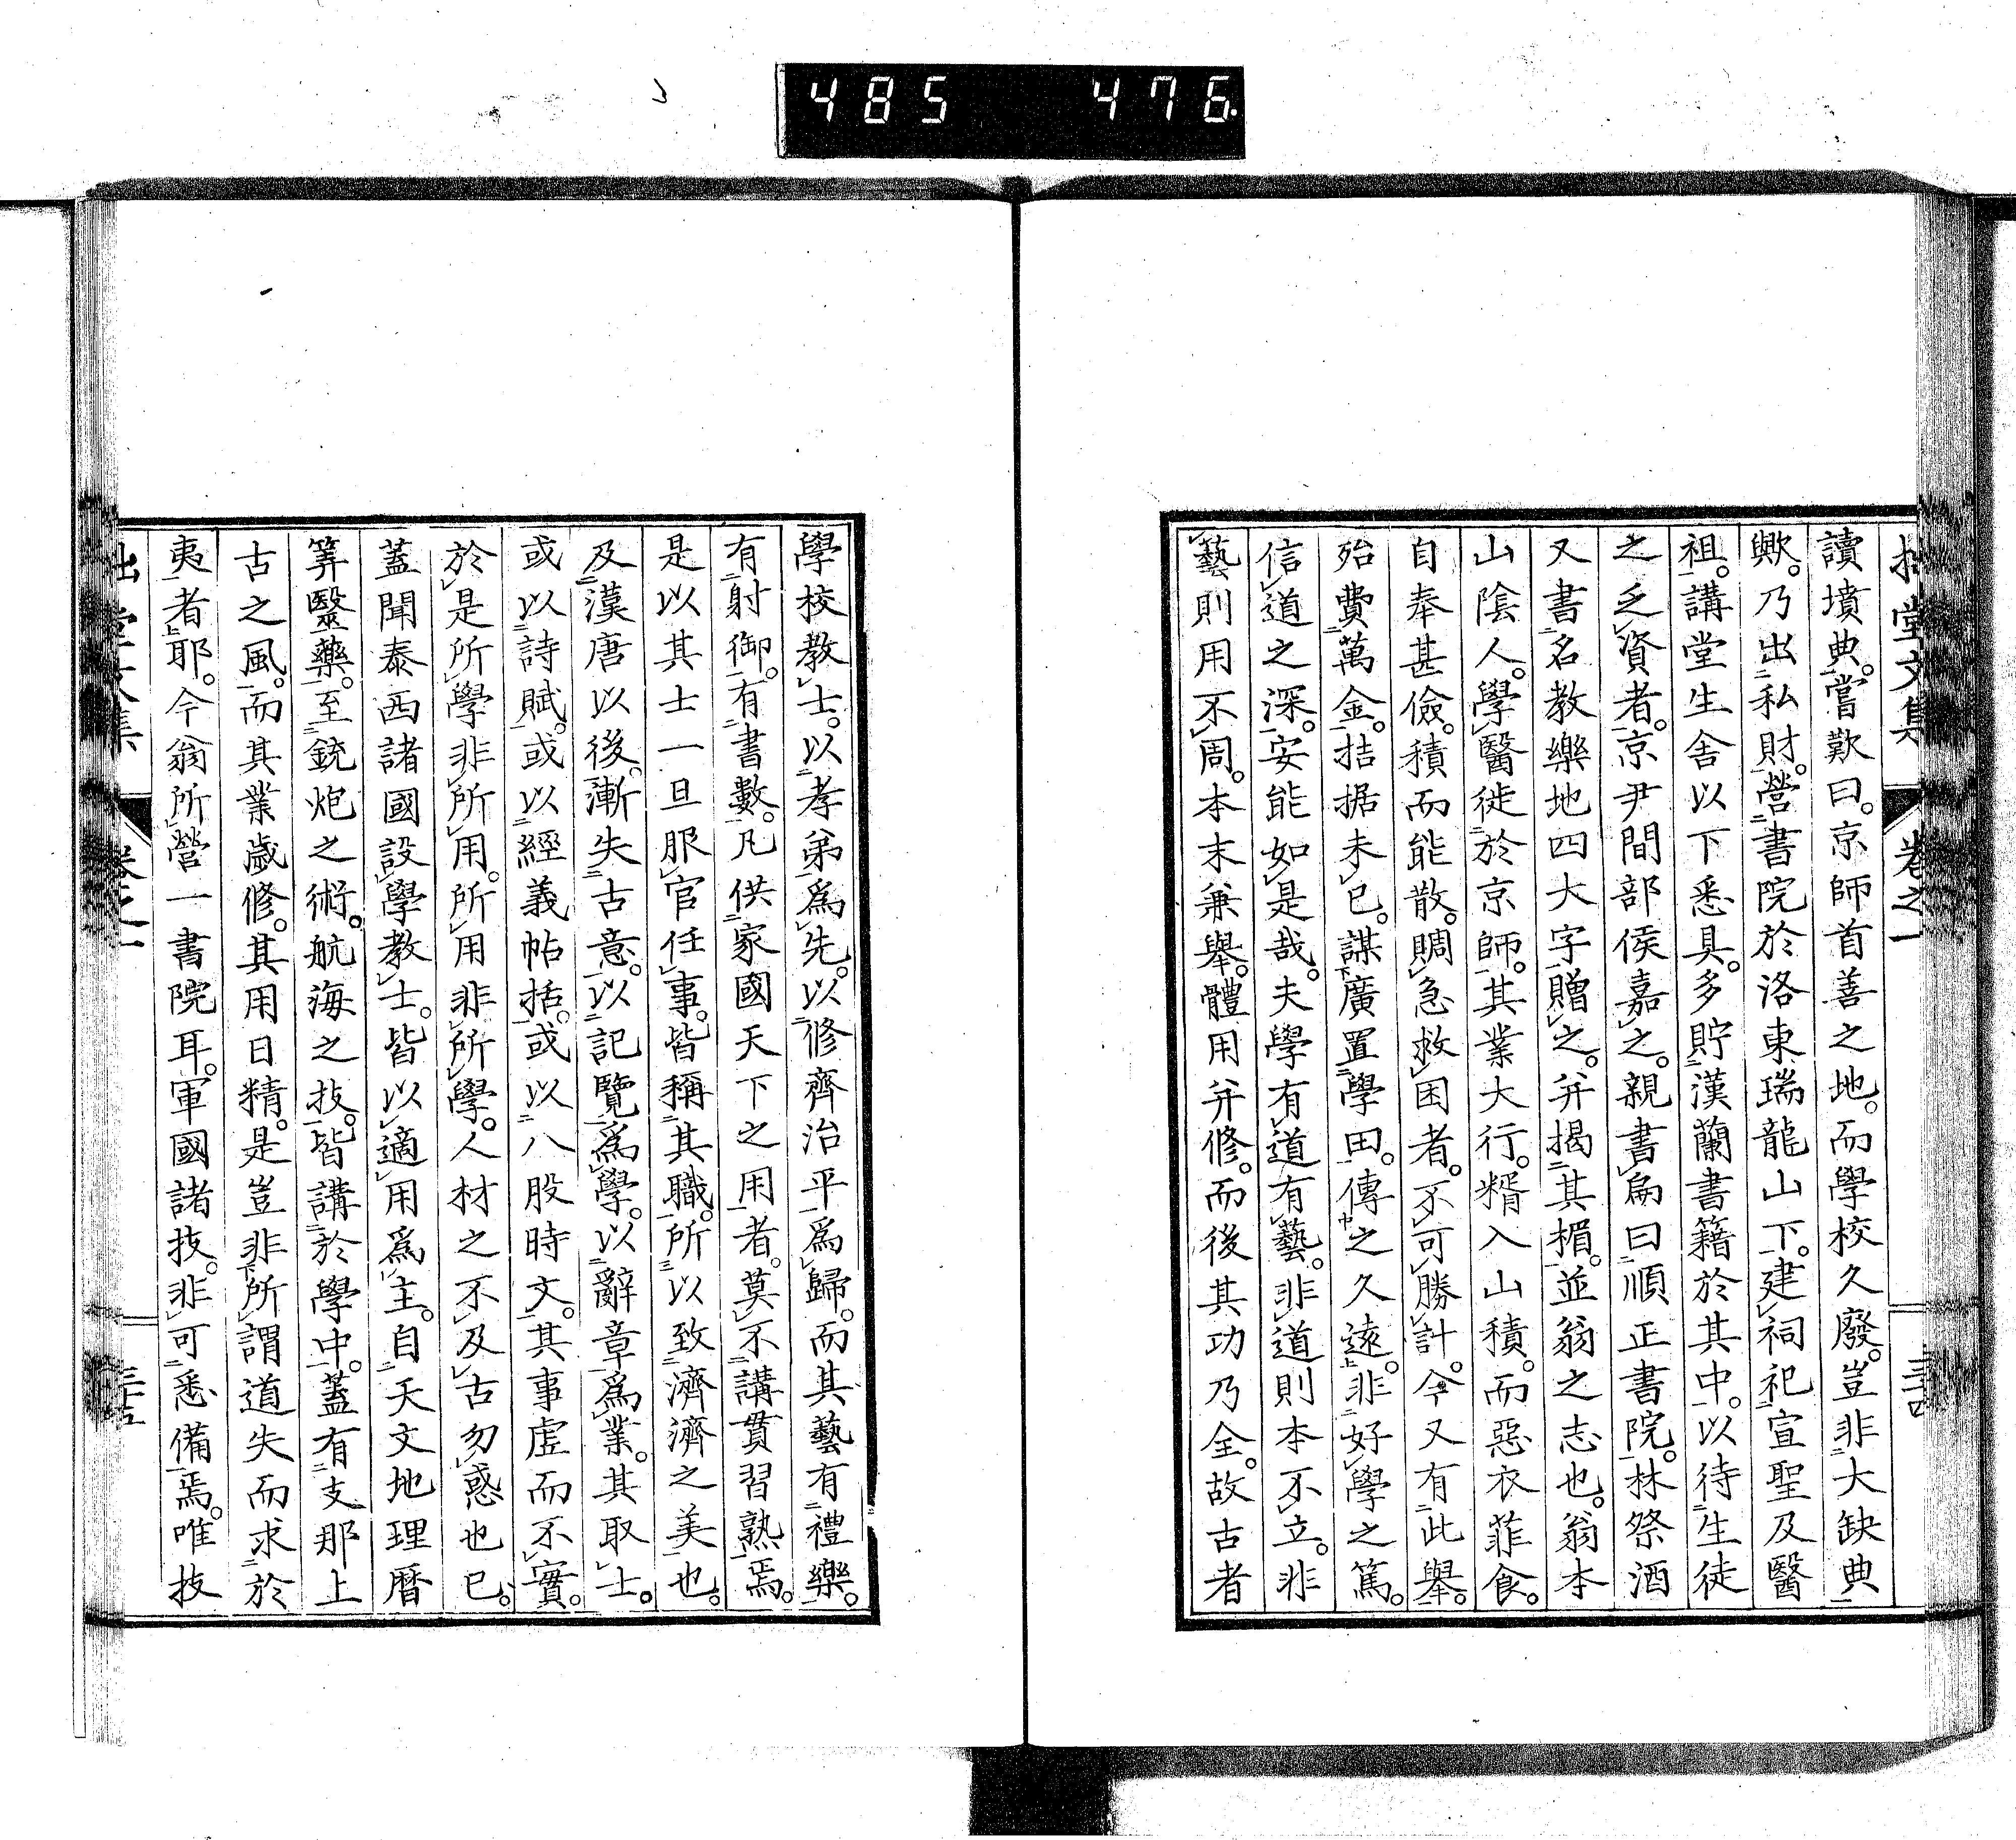 485 476.
拙堂文集 卷之一 三十四
讀墳典。嘗歎曰。京師首善之地。而學校久廢。豈非大缺典
歟。乃出私財。營書院於洛東瑞龍山下。建祠祀宣聖及醫
祖。講堂生舍以下悉具。多貯漢蘭書籍於其中。以待生徒
之乏資者。京尹間部侯嘉之。親書扁曰順正書院。林祭酒
又書名教樂地四大字贈之。并揭其楣。並翁之志也。翁本
山陰人。學醫徙於京師。其業大行。糈入山積。而惡衣菲食。
自奉甚儉。積而能散。賙急救困者。不可勝計。今又有此舉。
殆費萬金。拮据未已。謀廣置學田。傳之久遠。非好學之篤。
信道之深。安能如是哉。夫學有道有藝。非道則本不立。非
藝則用不周。本末兼舉。體用并修。而後其功乃全。故古者
學校教士。以孝弟爲先。以修齊治平爲歸。而其藝有禮樂。
有射御。有書數。凡供家國天下之用者。莫不講貫習熟焉。
是以其士一旦服官任事。皆稱其職。所以致濟濟之美也。
及漢唐以後。漸失古意。以記覽爲學。以辭章爲業。其取士。
或以詩賦。或以經義帖括。或以八股時文。其事虛而不實。
於是所學非所用。所用非所學。人材之不及古勿惑也已。
蓋聞泰西諸國設學教士。皆以適用爲主。自天文地理曆
筭毉藥。至銃炮之術。航海之技。皆講於學中。蓋有支那上
古之風。而其業歲修。其用日精。是豈非所謂道失而求於
夷者耶。今翁所營一書院耳。軍國諸技。非可悉備焉。唯技
拙堂文集 卷之一 三十五